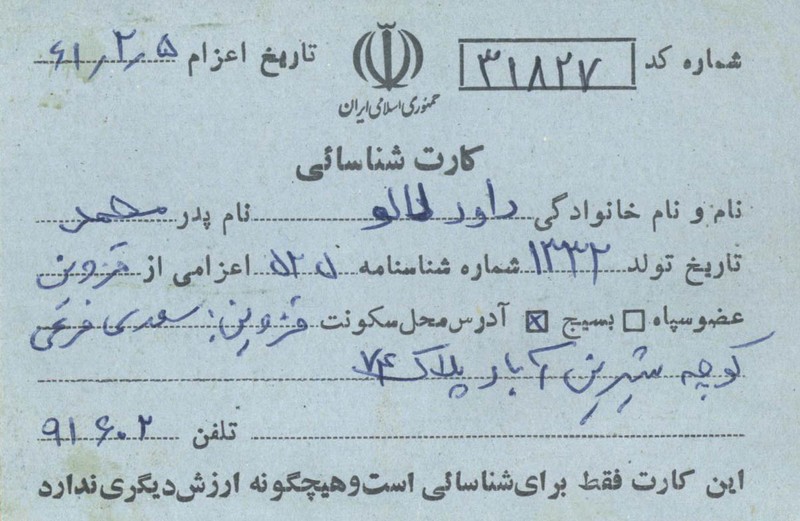 شماره کد ۳۱۸۲۷
جمهوری اسلامی ایران
تاریخ اعزام ۶۱٫۲٫۵
کارت شناسائی
نام و نام خانوادگی داود لالو نام پدر محمد
تاریخ تولد ۱۳۳۲ شماره شناسنامه ۵۲۵ اعزامی از قزوین
عضو سپاه بسیج آدرس محل سکونت قزوین: سعدی
کوچه شیرین آباد پلاک ۷۴
تلفن ۹۱۶۰۲
این کارت فقط برای شناسائی است و هیچگونه ارزش دیگری ندارد